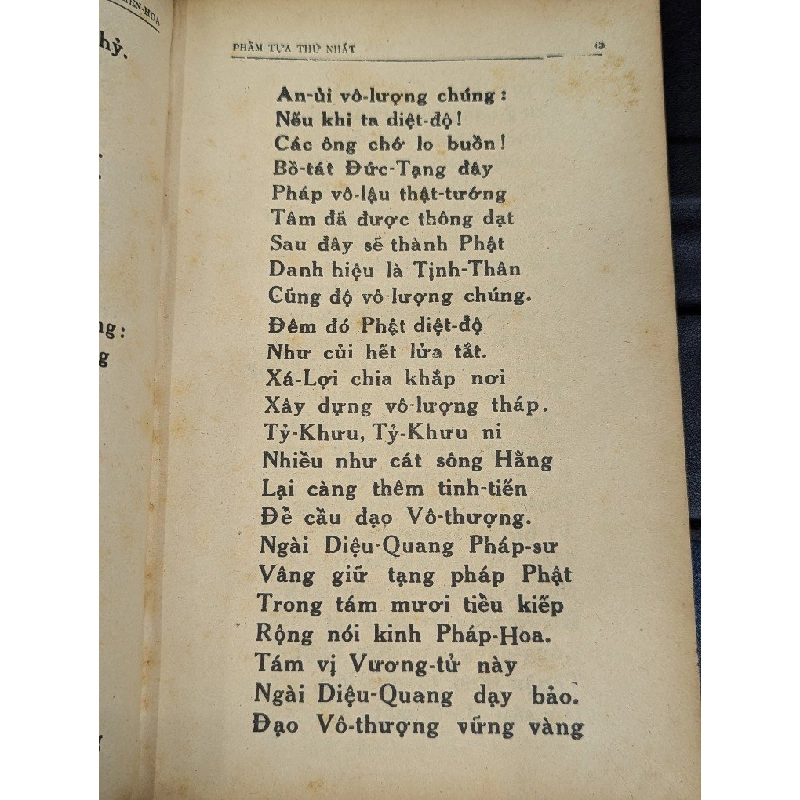 hỷ.
ng:
g
PHẨM TỰA THỨ NHẤT
An-ủi vô-lượng chúng:
Nếu khi ta diệt-độ!
Các ông chớ lo buồn!
Bồ-tát Đức-Tạng đây
Pháp vô-lậu thật-tướng
Tâm đã được thông đạt
Sau đây sẽ thành Phật
Danh hiệu là Tịnh-Thân
Cũng độ vô lượng chúng.
Đêm đó Phật diệt-độ
Như củi hết lửa tắt.
Xá-Lợi chia khắp nơi
Xây dựng vô-lượng tháp.
Tỷ-Khưu, Tỷ-Khưu ni
Nhiều như cát sông Hằng
Lại càng thêm tinh-tiến
Để cầu đạo Vô-thượng.
Ngài Diệu-Quang Pháp-sư
Vâng giữ tạng pháp Phật
Trong tám mươi tiểu kiếp
Rộng nói kinh Pháp-Hoa.
Tám vị Vương-tử này
Ngài Diệu-Quang dạy bảo.
Đạo Vô-thượng vững vàng